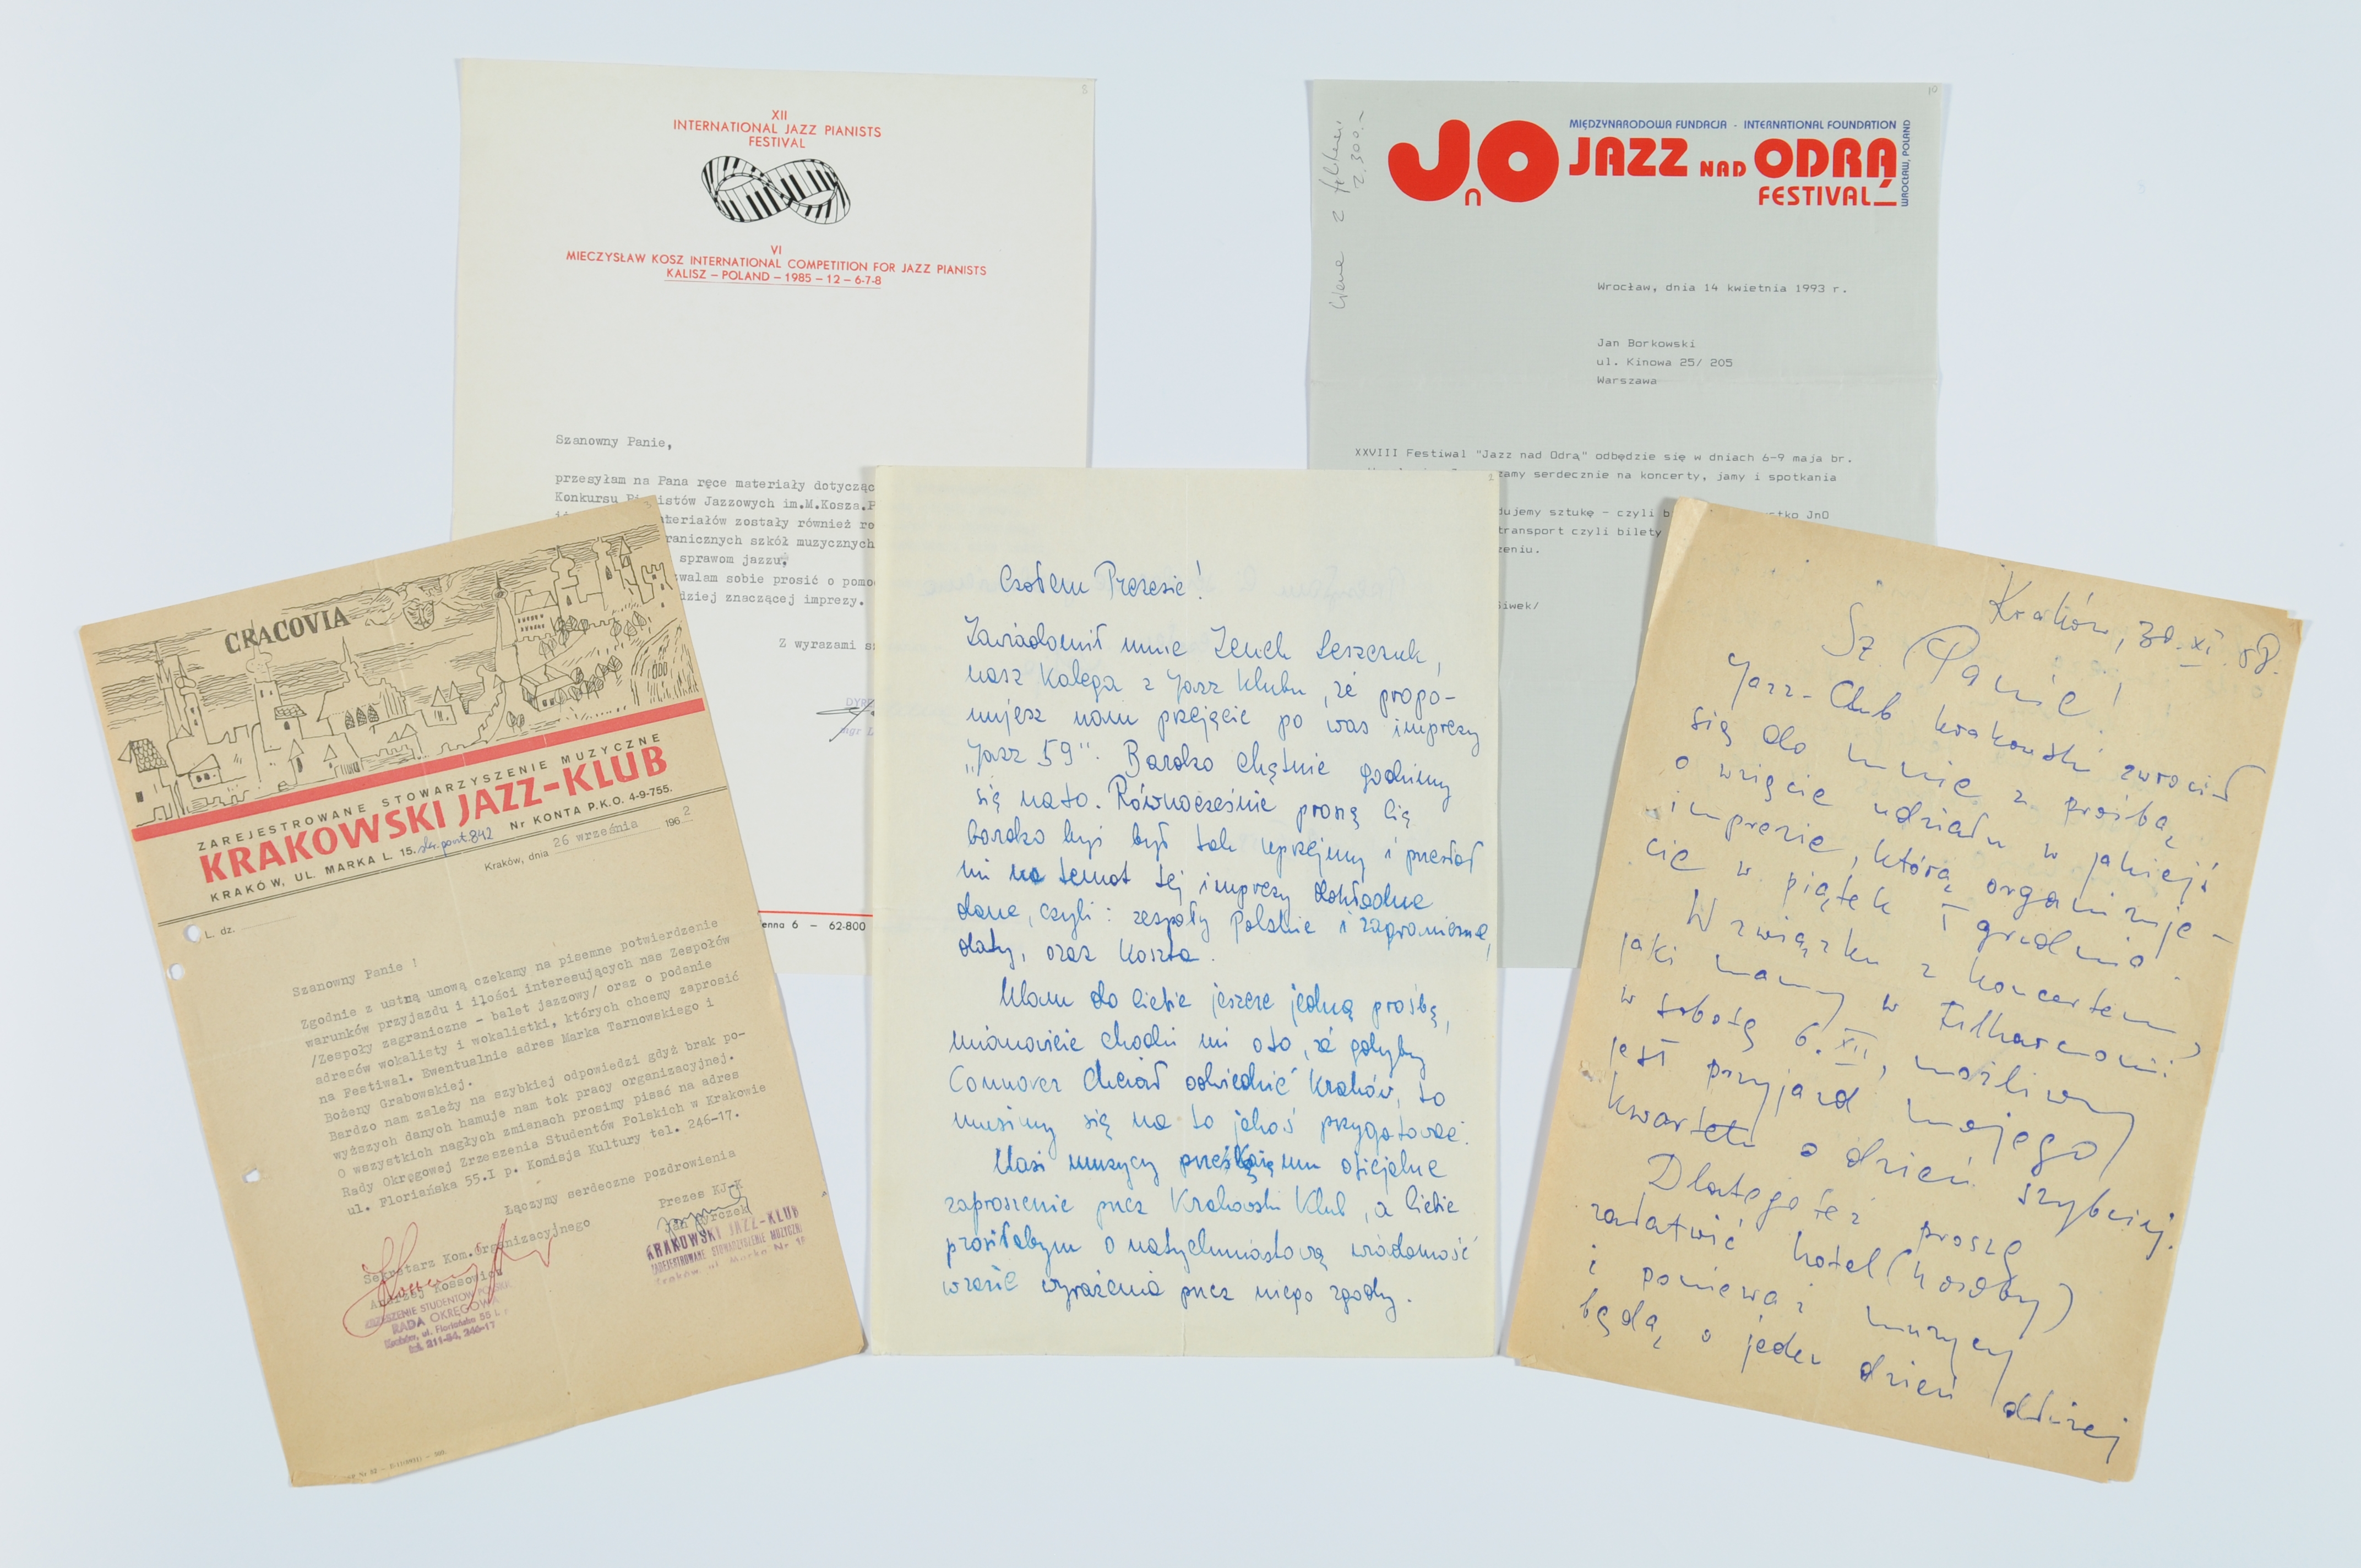 XII
INTERNATIONAL JAZZ PIANISTS
FESTIVAL
VI
MIECZYSŁAW KOSZ INTERNATIONAL COMPETITION FOR JAZZ PIANISTS
KALISZ – POLAND – 1985 – 12 – 6-7-8
Szanowny Panie,
przesyłam na Pana ręce materiały dotycząc
Konkursu Pianistów Jazzowych im.M.Kosza.P
ateriałów zostały również ro
ranicznych szkół muzycznych
sprawom jazzu,
zwalam sobie prosić o pomo
dziej znaczącej imprezy.
Z wyrazami s
DYRE
mgr
enna 6 – 62-800
8
10
JnO
MIĘDZYNARODOWA FUNDACJA - INTERNATIONAL FOUNDATION
JAZZ NAD ODRĄ
FESTIVAL
WROCŁAW, POLAND
2.300.-
Wrocław, dnia 14 kwietnia 1993 r.
Jan Borkowski
ul. Kinowa 25/ 205
Warszawa
XXVIII Festiwal "Jazz nad Odrą" odbędzie się w dniach 6-9 maja br.
zamy serdecznie na koncerty, jamy i spotkania
dujemy sztukę - czyli b
stko JnO
transport czyli bilety
zeniu.
iwek/
CRACOVIA
ZAREJESTROWANE STOWARZYSZENIE MUZYCZNE
KRAKOWSKI JAZZ-KLUB
KRAKÓW, UL. MARKA L. 15. skr. poczt. 842 Nr KONTA P.K.O. 4-9-755.
Kraków, dnia 26 września 1962
L. dz.
Szanowny Panie !
Zgodnie z ustną umową czekamy na pisemne potwierdzenie
warunków przyjazdu i ilości interesujących nas Zespołów
/Zespoły zagraniczne - balet jazzowy/ oraz o podanie
adresów wokalisty i wokalistki, których chcemy zaprosić
na Festiwal. Ewentualnie adres Marka Tarnowskiego i
Bożeny Grabowskiej.
Bardzo nam zależy na szybkiej odpowiedzi gdyż brak po-
wyższych danych hamuje nam tok pracy organizacyjnej.
O wszystkich nagłych zmianach prosimy pisać na adres
Rady Okręgowej Zrzeszenia Studentów Polskich w Krakowie
ul. Floriańska 55.I p. Komisja Kultury tel. 246-17.
Łączymy serdeczne pozdrowienia
Sekretarz Kom.Organizacyjnego
Andrzej Kossowicz
Prezes KJ-K
Jan Byrczek
ZRZESZENIE STUDENTÓW POLSKICH
RADA OKRĘGOWA
Kraków, ul. Floriańska 55 I. p.
tel. 211-84, 246-17
KRAKOWSKI JAZZ-KLUB
ZAREJESTROWANE STOWARZYSZENIE MUZYCZN
Kraków ul. Marka Nr 15
Czołem Prezesie!
Zawiadomił mnie Zenek Leszczuk,
nasz kolega z Jazz Klubu, że propo-
nujesz nam przejęcie po was imprezy
„Jazz 59". Bardzo chętnie godzimy
się na to. Równocześnie proszę Cię
bardzo byś był tak uprzejmy i przesłał
mi na temat tej imprezy dokładne
dane, czyli: zespoły Polskie i zagraniczne,
daty, oraz koszta.
Mam do Ciebie jeszcze jedną prośbę,
mianowicie chodzi mi o to, że gdyby
Connover chciał odwiedzić Kraków, to
musimy się na to jakoś przygotować.
Nasi muzycy prześlą mu oficjalne
zaproszenie przez Krakowski Klub, a Ciebie
prosiłabym o natychmiastową wiadomość
w razie wyrażenia przez niego zgody.
Kraków, 30.XI.58.
Sz. Panie!
Jazz-Club krakowski zwrócił
się do mnie z prośbą
o wzięcie udziału w jakiejś
imprezie, którą organizuje-
cie w piątek 5 grudnia.
W związku z koncertem
jaki mamy w Filharmonii
w sobotę 6.XII, możliwy
jest przyjazd mojego
kwartetu o dzień szybciej.
Dlatego też proszę
załatwić hotel (4 osoby)
i ponieważ muzycy
będą o jeden dzień dłużej